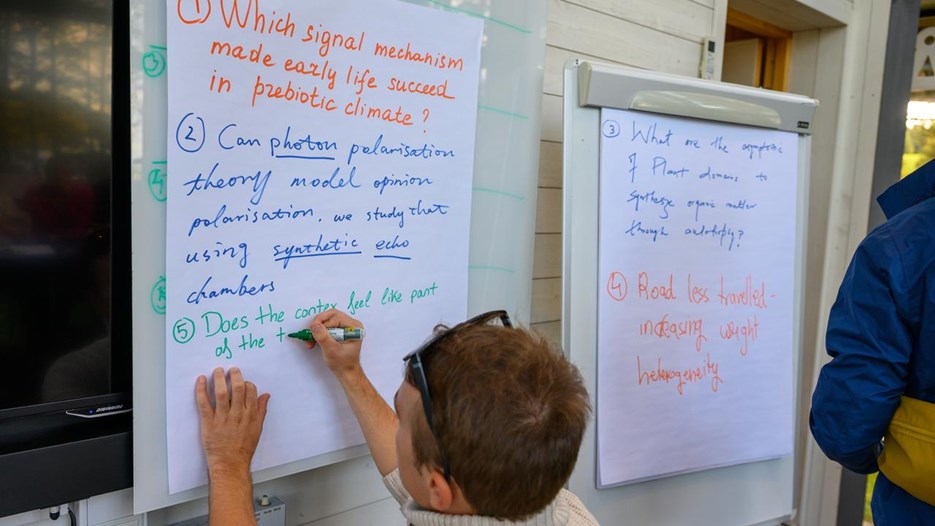 ① Which signal mechanism
made early life succeed
in prebiotic climate?
② Can photon polarisation
theory model opinion
polarisation. we study that
using synthetic echo
chambers
⑤ Does the cortex feel like part
of the t
③ What are the
of Plant domains to
synthesize organic matter
through
④ Road less travelled-
increasing weight
heterogeneity